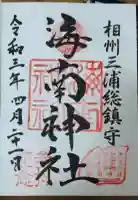 相州三浦総鎮守
海南神社
令和三年四月二十一日